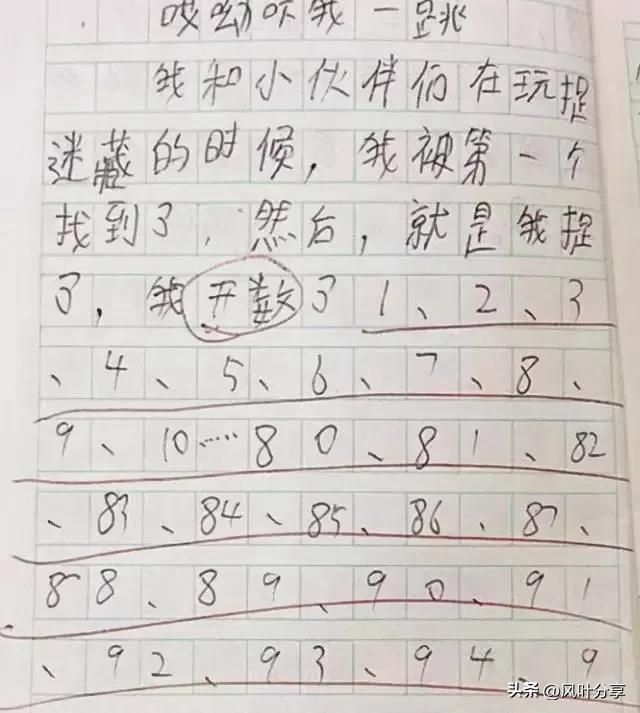 哎呦吓我一跳
我和小伙伴们在玩捉
迷藏的时候，我被第一个
找到了，然后，就是我捉
了，我开数了1、2、3
、4、5、6、7、8、
9、10……80、81、82
、83、84、85、86、87、
88、89、90、91
、92、93、94、9
头条@风叶分享